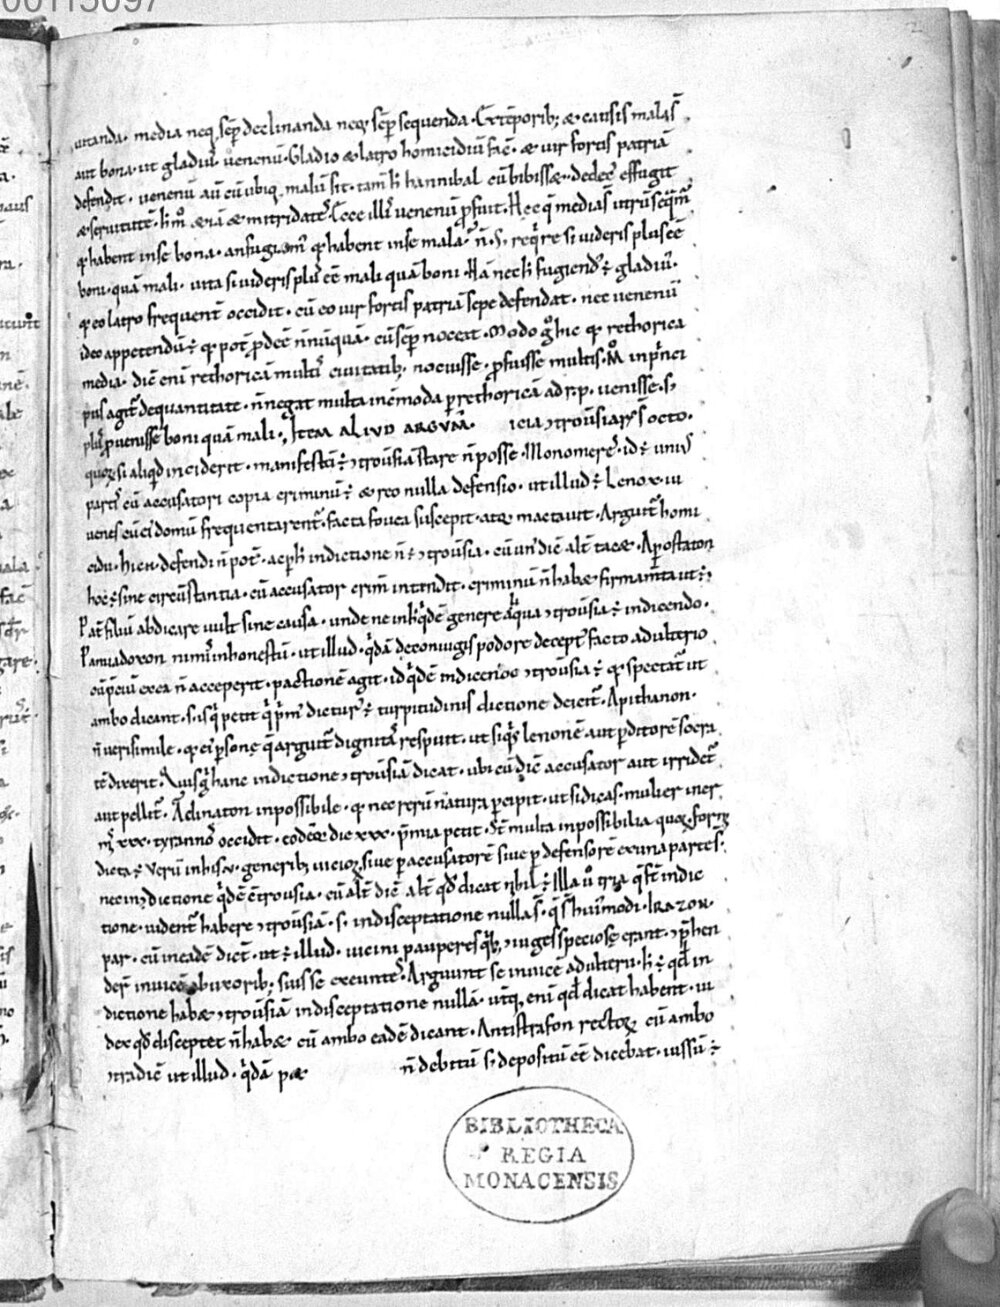 00115097
uitanda· media neq; sēp declinanda neq; sēp sequenda· Ex tēporib; & causis mala s̄
aut bona· ut gladiū· uenenū· Gladio & latro homicidiū fac̄· & uir fortis patriā
defendit· uenenū aū cū ubiq; malū sit· tam̄ hannibal eū bibisse· dedec̄ effugit
& seruitutē· & mitridatē· Ecce illi uenenū ꝓfuit· Hec q̄ media s̄ utrū
q̄ habent in se bona· an fugiam̄ q̄ habent in se mala· n̄· req̄re si uideris plus eē
boni· quā mali· uita si uideris plus eē mali quā boni· Nā nec fugiendꝰ ē gladiū·
q̄ eo latro frequent̄ occidit· cū eo uir fortis patriā sepe defendat· nec uenenū
ideo appetendū ē q̄ pot̄ ꝓdeē nūquā· cū sēp noceat· Modo hic q̄ rethorica
media· dic̄ enī rethoricā multis ciuitatib; nocuisse· ꝓfuisse multis· in prīci
pus agit̄ de quantitate· n̄ negat multa incōmoda p rethoricā ad r·p· uenisse· s;
plꝰ ꝓuenisse boni quā mali· ITEM ALIVD ARGVM̄· ꝯtrouersiarū s̄ octo·
quoꝝ si aliqd inciderit· manifestū ē ꝯtrouersia stare n̄ posse· Monomeres· id ē uniꝰ
partis cū accusatori copia criminū ē & reo nulla defensio· ut illud ē Leno x· iu
uenes cū ei domū frequentarent· facta fouea suscepit· atq; mactauit· Arguit̄ homi
cidii· hic n̄ defendi n̄ pot̄· ac p h̄ indictione n̄ ē ꝯtrouersia· cū unꝰ dic̄ alt̄ tac&· Aperostaton
hoc ē sine circūstantia· cū accusator crim̄ intendit· criminū n̄ hab& firmam̄ta ut ē
Pat̄ filiū abdicare uult sine causa· unde ne in h̄ qdē genere aliqua ꝯtrouersia ē in dicendo·
Paniadoxon nimiū inhonestū· ut illud· qdā de coniugis podore deceptꝰ facto adulterio
cū p̄ciū ex ea n̄ acceperit· pactionē agit· id qdē in dicendo ꝯtrouersia ē q̄ spectat̄ ut
ambo dicant· s; is q̄ petit q̄ p̄mꝰ dicturꝰ ē turpitudinis dictione deicit̄· Apithanon·
n̄ uerisimile· q̄ ei psone q̄ arguit̄ dignitas respuit· ut si qs lenonē aut pditorē socra
tē dixerit· Quis g hanc indictione ꝯtrouersiā dicat· ubi cū dic̄ accusator aut irridet̄
aut pellit̄· Adinaton inpossibile· q̄ nec rerū natura pcipit· ut si dicas· mulier iner
mis xxx· tyrannos occidit· eodēq; die xxx· p̄mia petit· S̄t multa inpossibilia quoꝝ
dicta ē Verū in his generib; uicioꝝ siue p accusatorē siue p defensorē ex una parte s̄·
nec in dictione qdē ē ꝯtrouersia· cū alt̄ dic̄ alt̄ qd dicat nihil ē Illa u tria q̄ s̄t in dic
tione· uident̄ habere ꝯtrouersiā· s; in disceptatione nulla s̄· q̄ s̄ huiꝰmodi· Isazon·
par· cū ineadē dic̄t· ut ē illud· uicini pauperes quib; ꝯiuges speciose erant· ꝯphen
der̄ inuicē ab uxorib; suis se exeuntes· Arguunt se inuicē adulterii· h̄ ē qd in
dictione hab& ꝯtrouersiā in disceptatione nullā· utq; enī qd dicat habent· iu
dex qd disceptet n̄ hab& cū ambo eadē dicant· Antistrafon rectoꝝ cū ambo
ꝯtra dic̄ ut illud· qdā p& n̄ debitū s; depositū eē dicebat· iussū ē
BIBLIOTHECA
REGIA
MONACENSIS